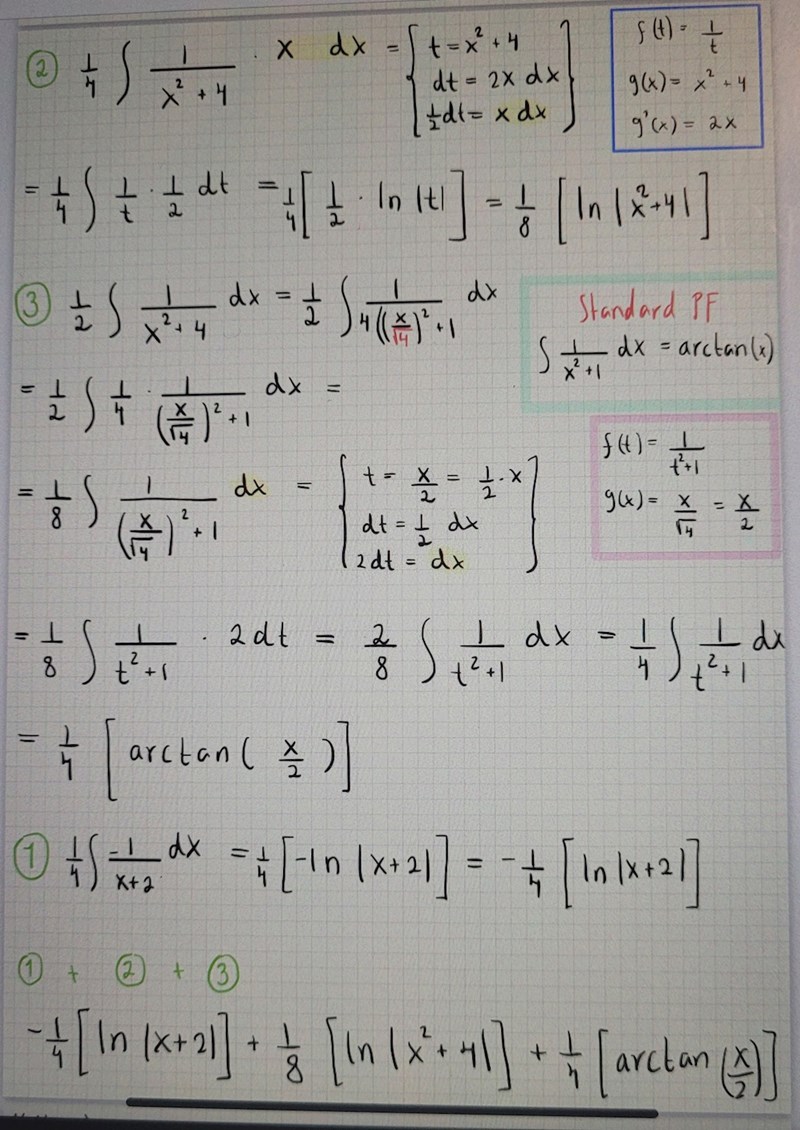 ② 1/4 ∫ 1/(x² + 4) · x dx = { t = x² + 4
dt = 2x dx
1/2 dt = x dx }
f(t) = 1/t
g(x) = x² + 4
g'(x) = 2x
= 1/4 ∫ 1/t · 1/2 dt = 1/4 [ 1/2 · ln |t| ] = 1/8 [ ln |x²+4| ]
③ 1/2 ∫ 1/(x² + 4) dx = 1/2 ∫ 1/(4((x/√4)² + 1 dx
Standard PF
∫ 1/(x²+1) dx = arctan(x)
= 1/2 ∫ 1/4 · 1/((x/√4)² + 1) dx =
f(t) = 1/(t²+1)
g(x) = x/√4 = x/2
= 1/8 ∫ 1/((x/√4)² + 1) dx = { t = x/2 = 1/2 · x
dt = 1/2 dx
2dt = dx }
= 1/8 ∫ 1/(t²+1) · 2dt = 2/8 ∫ 1/(t²+1) dx = 1/4 ∫ 1/(t²+1) dx
= 1/4 [ arctan( x/2 ) ]
① 1/4 ∫ -1/(x+2) dx = 1/4 [ -ln |x+2| ] = - 1/4 [ ln |x+2| ]
① + ② + ③
- 1/4 [ ln |x+2| ] + 1/8 [ ln |x² + 4| ] + 1/4 [ arctan (x/2) ]